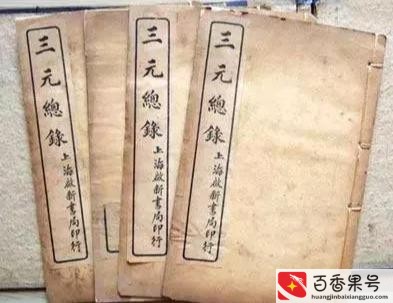 三元總錄 上海啟新書局印行
三元總錄 上海啟新書局印行
三元總錄 上海啟新書局印行
百香果号
huangjinbaixiangguo.com